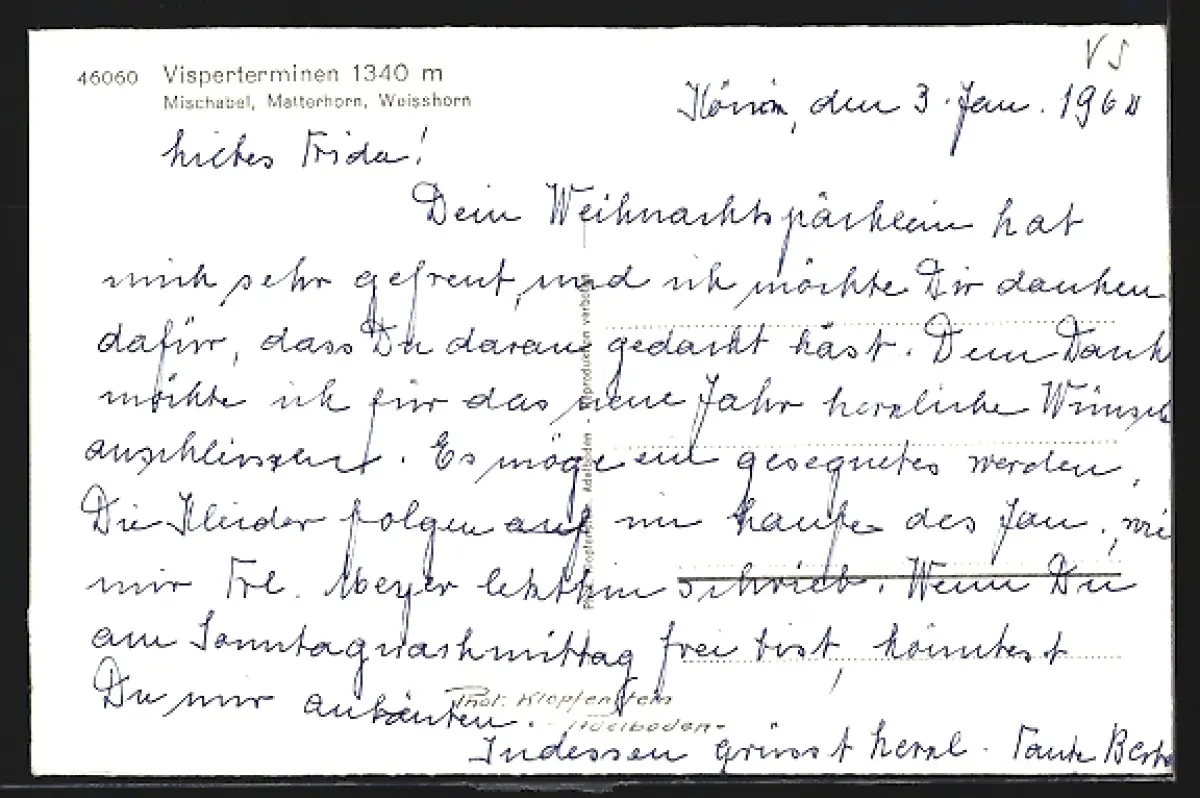 VS
46060 Visperterminen 1340 m
Mischabel, Matterhorn, Weisshorn
Köniz, den 3. Jan. 196
Liebes Frida!
Dein Weihnachtspäcklein hat
mich sehr gefreut, und ich möchte Dir danken
dafür, dass Du daran gedacht hast. Dem Dank
möchte ich für das neue Jahr herzliche Wünsch
anschliessen. Es möge ein gesegnetes werden.
Die Kleider folgen auf im Laufe des Jan., wie
mir Frl. Meyer letzthin schrieb. Wenn Du
am Sonntagnachmittag frei bist, könntest
Du mir anläuten.
Phot. Klopfenstein
Adelboden
Indessen grüsst herzl. Tante Bert
Klopfenstein, Adelboden - Reproduktion verboten